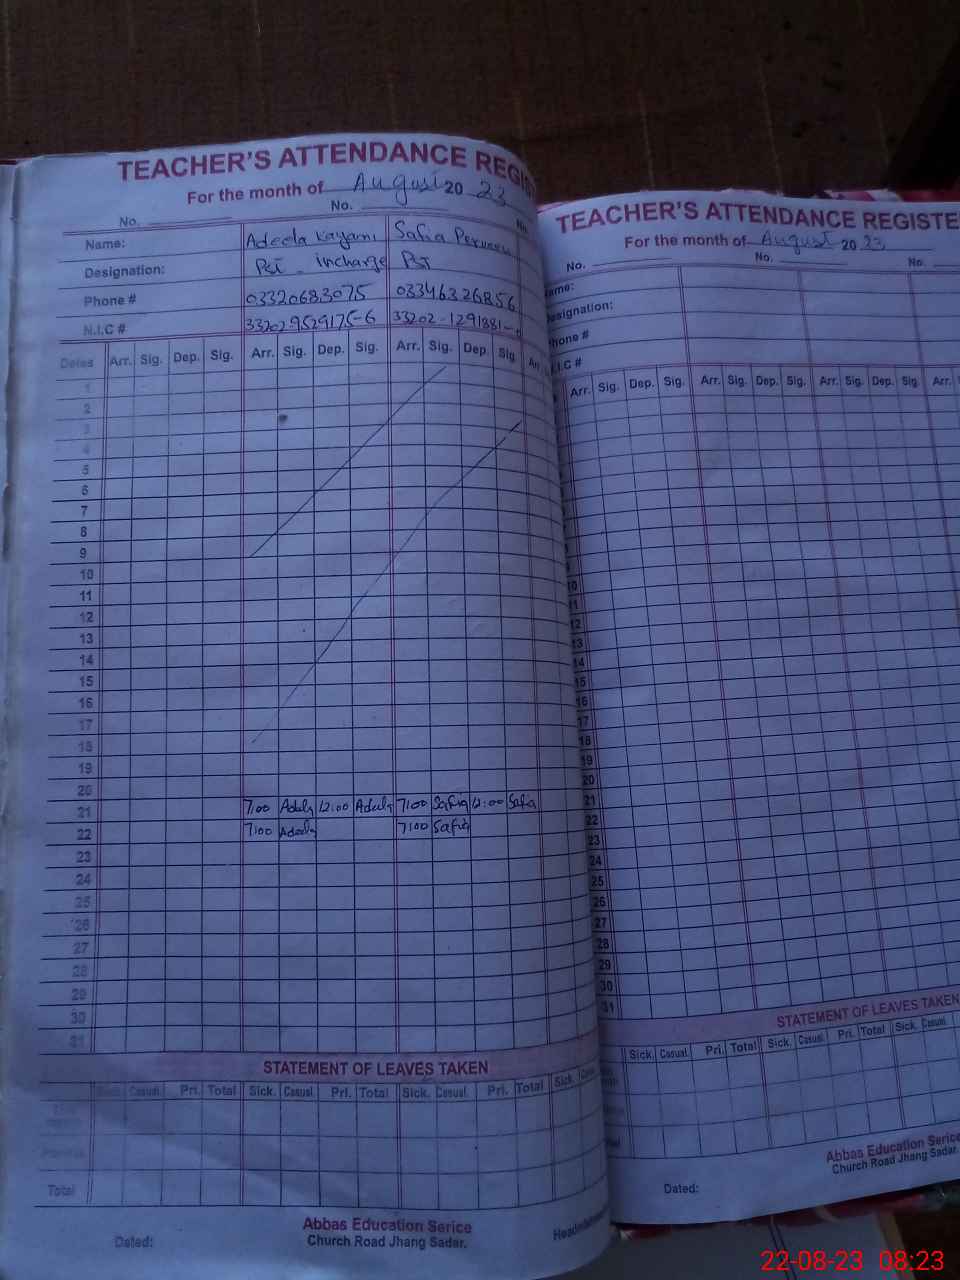 TEACHER'S ATTENDANCE REGIST
For the month of August 20 23
No. No. No.
Name: Adeela Kayani Safia Perveen
Designation: Pst incharge PST
Phone # 03320683075 03346326856
N.I.C # 33202-9529175-6 33202-1291881-
Dates Arr. Sig. Dep. Sig. Arr. Sig. Dep. Sig. Arr. Sig. Dep. Sig. Arr.
1
2
3
4
5
6
7
8
9
10
11
12
13
14
15
16
17
18
19
20
21 7:00 Adeela 12:00 Adeela 7:00 Safia 12:00 Safia
22 7:00 Adeela 7:00 Safia
23
24
25
26
27
28
29
30
31
STATEMENT OF LEAVES TAKEN
Sick. Casual. Pri. Total Sick. Casual. Pri. Total Sick. Casual. Pri. Total Sick. Casual
Total
Abbas Education Serice
Church Road Jhang Sadar.
Dated:
TEACHER'S ATTENDANCE REGISTE
For the month of August 20 23
No. No. No.
ame:
esignation:
hone #
I.C #
Arr. Sig. Dep. Sig. Arr. Sig. Dep. Sig. Arr. Sig. Dep. Sig. Arr.
10
11
12
13
14
15
16
17
18
19
20
21
22
23
24
25
26
27
28
29
30
31
STATEMENT OF LEAVES TAKEN
Sick. Casual. Pri. Total Sick. Casual. Pri. Total Sick. Casual.
Abbas Education Serice
Church Road Jhang Sadar.
Dated:
22-08-23 08:23